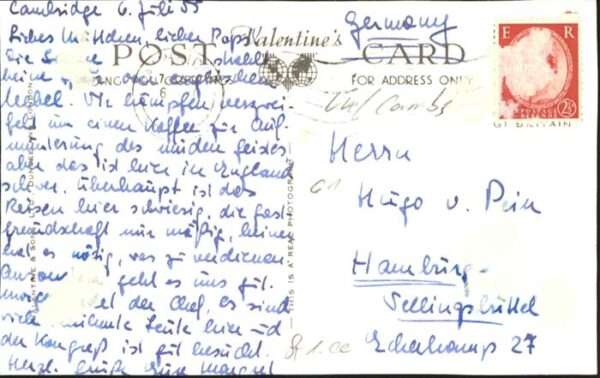 Cambridge 6. Juli 55
Liebes Mütterchen, lieber Paps
Die Sonne strahlt
keine von englischen
Nebel. Wir kämpfen verzwei-
felt um einen Kaffee zur Auf-
munterung des müden Geistes
aber das ist hier in England
schwer. Überhaupt ist das
Reisen hier schwierig, die Gast-
freundschaft nur mäßig, keiner
hat es nötig, was zu verdienen
geht es uns gut.
der Chef, es sind
viele Leute hier und
der Kongreß ist gut besucht.
Herzl. Grüße Eure Margret
POST CARD
Valentine's
FOR ADDRESS ONLY
THIS IS A REAL PHOTOGRAPH
Germany
E R
2½
GT BRITAIN
Cambs
Herrn
Hugo v. Pein
Hamburg-
Sellingsbüttel
Eckerkamp 27